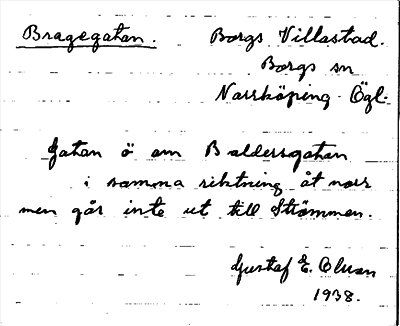 Bragegatan. Borgs Villastad.
Borgs sn
Norrköping Ögl.
Gatan ö om Baldersgatan
i samma riktning åt norr
men går inte ut till Strömmen.
Gustaf E. Olson
1938.